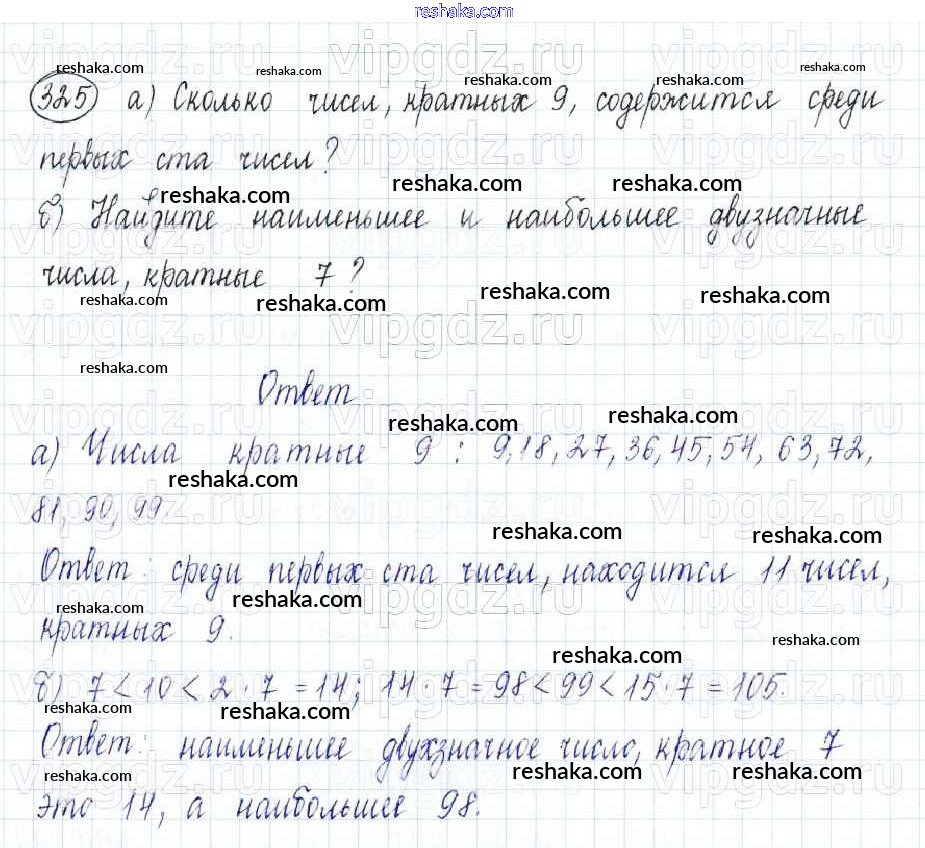 reshaka.com
325 а) Сколько чисел, кратных 9, содержится среди
первых ста чисел?
б) Найдите наименьшее и наибольшее двузначные
числа, кратные 7?
Ответ
а) Числа кратные 9 : 9,18,27,36,45,54,63,72,
81,90,99.
Ответ: среди первых ста чисел, находится 11 чисел,
кратных 9.
б) 7 < 10 < 2 · 7 = 14; 14 · 7 = 98 < 99 < 15 · 7 = 105.
Ответ: наименьшее двухзначное число, кратное 7
это 14, а наибольшее 98.